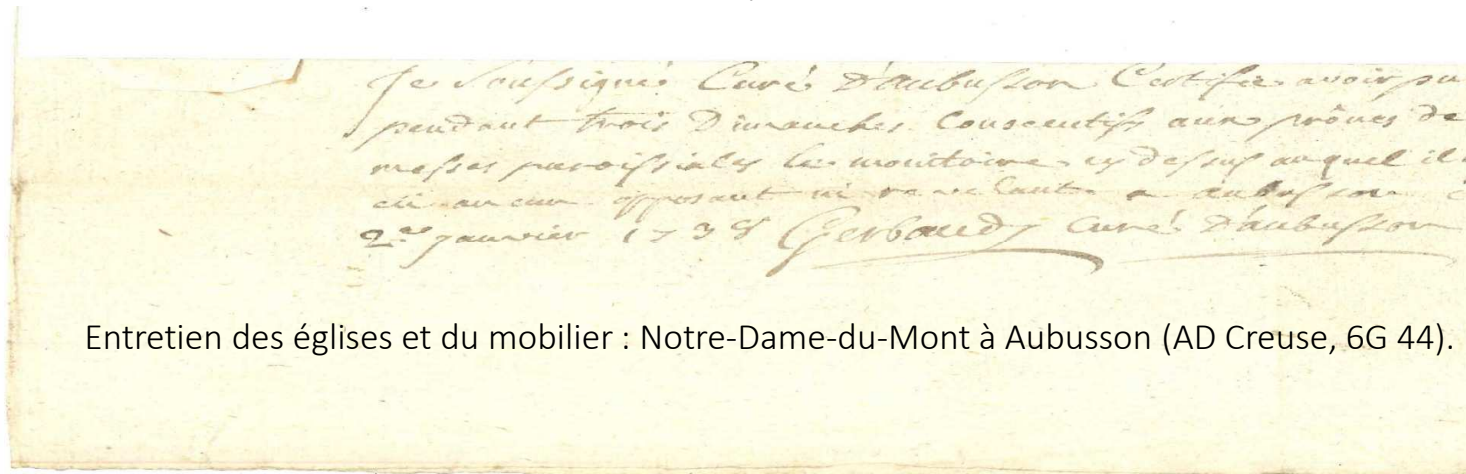 Je Soussigné Curé D'aubusson Certifie avoir pu
pendant trois Dimanches Consecutifs aux prônes de
messes paroissiales le monitoire cy dessus auquel il
eu aucun opposant ni revelant a aubusson
2me janvier 1738 Gerbaudy Curé D'aubusson
Entretien des églises et du mobilier : Notre-Dame-du-Mont à Aubusson (AD Creuse, 6G 44).